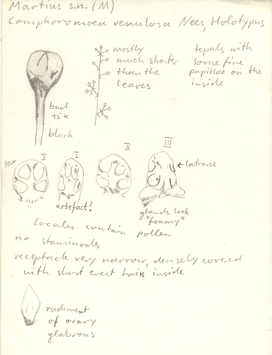 Martius s.n. (M)
Camphoromoea venulosa Nees, Holotypus
mostly
much shorter
than the
leaves
tepals with
some fine
papillae on the
inside
bud
15x
30x
I
I
II
III
artefact!
glabrous
glands look
"foamy"
Locules contain pollen
no staminodes
receptacle very narrow, densely covered
with short erect hairs inside
rudiment
of ovary
glabrous